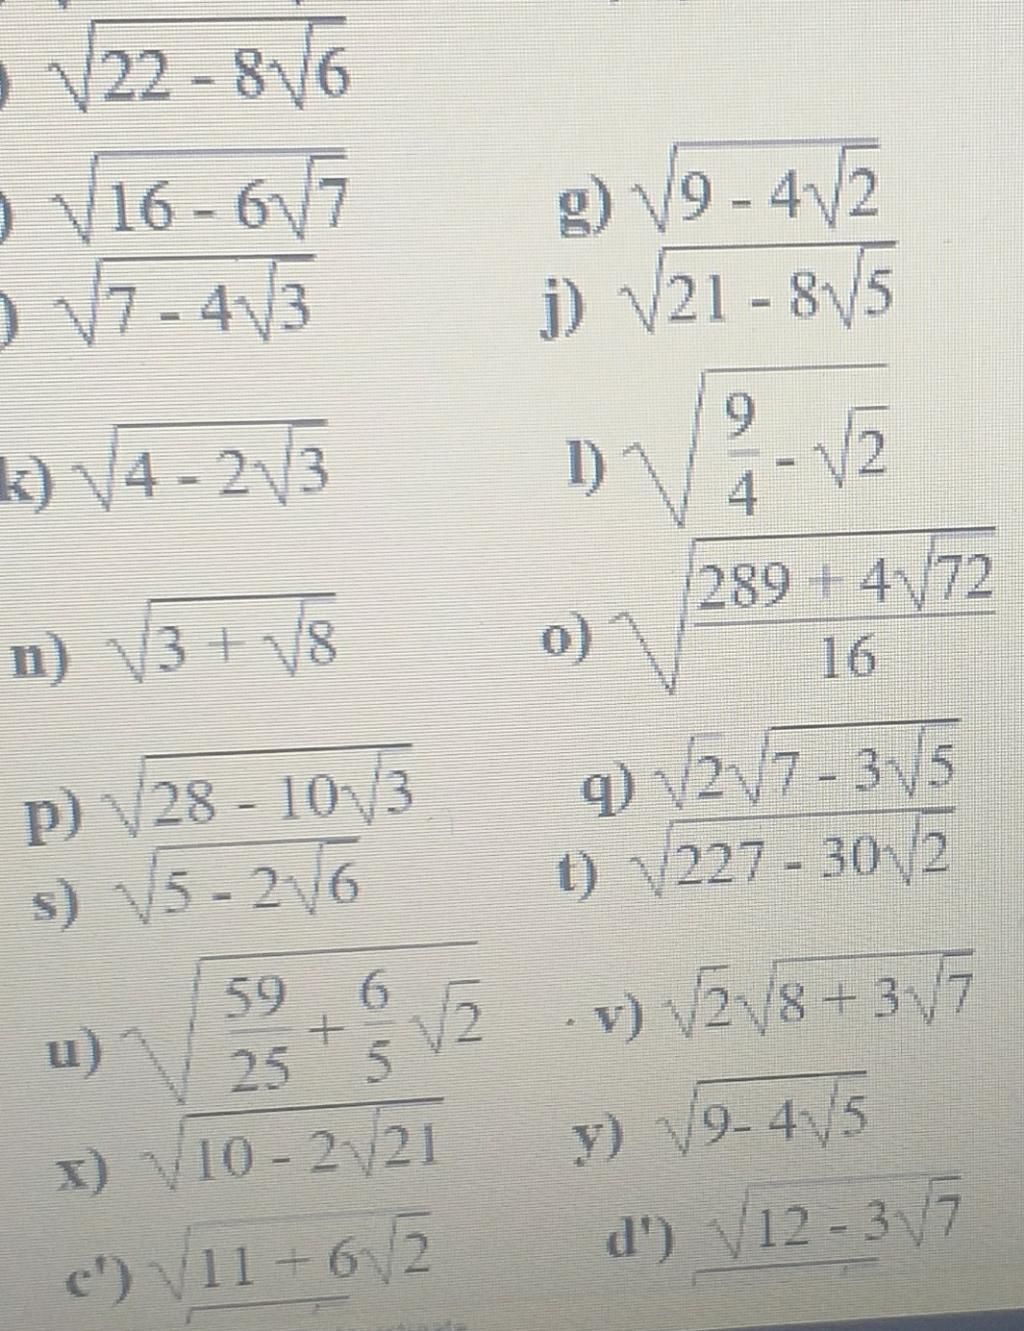 ) √(22 - 8√6)
) √(16 - 6√7)
g) √(9 - 4√2)
) √(7 - 4√3)
j) √(21 - 8√5)
k) √(4 - 2√3)
l) √(9/4 - √2)
n) √(3 + √8)
o) √((289 + 4√72)/16)
p) √(28 - 10√3)
q) √2√(7 - 3√5)
s) √(5 - 2√6)
t) √(227 - 30√2)
u) √(59/25 + 6/5 √2)
v) √2√(8 + 3√7)
x) √(10 - 2√21)
y) √(9- 4√5)
c') √(11 + 6√2)
d') √(12 - 3√7)